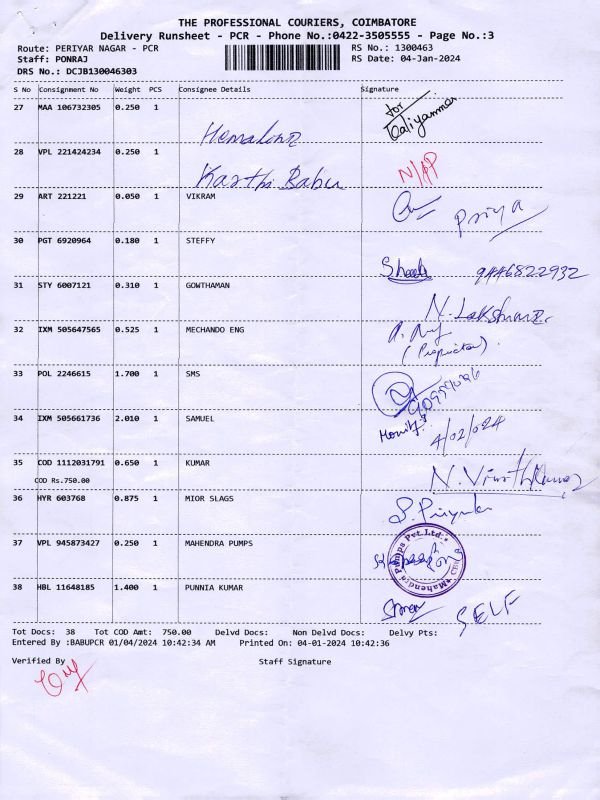 THE PROFESSIONAL COURIERS, COIMBATORE
Delivery Runsheet - PCR - Phone No.:0422-3505555 - Page No.:3
Route: PERIYAR NAGAR - PCR RS No.: 1300463
Staff: PONRAJ RS Date: 04-Jan-2024
DRS No.: DCJB130046303
S No Consignment No Weight PCS Consignee Details Signature
27 MAA 106732305 0.250 1 for
28 VPL 221424234 0.250 1 Karthi Babu N/AP
29 ART 221221 0.050 1 VIKRAM Priya
30 PGT 6920964 0.180 1 STEFFY 9446822932
31 STY 6007121 0.310 1 GOWTHAMAN N. Lakshmanan
32 IXM 505647565 0.525 1 MECHANDO ENG
(Proprietor)
33 POL 2246615 1.700 1 SMS
34 IXM 505661736 2.010 1 SAMUEL 4/02/024
35 COD 1112031791 0.650 1 KUMAR
COD Rs.750.00
36 HYR 603768 0.875 1 MIOR SLAGS S. Priyanka
37 VPL 945873427 0.250 1 MAHENDRA PUMPS Mahendra Pumps Pvt.Ltd.
38 HBL 11648185 1.400 1 PUNNIA KUMAR SELF
Tot Docs: 38 Tot COD Amt: 750.00 Delvd Docs: Non Delvd Docs: Delvy Pts:
Entered By :BABUPCR 01/04/2024 10:42:34 AM Printed On: 04-01-2024 10:42:36
Verified By Staff Signature